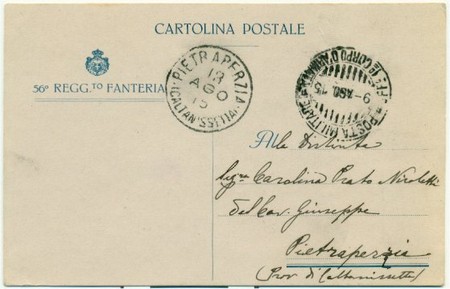 CARTOLINA POSTALE
56º REGG.TO FANTERIA
PIETRAPERZIA
13
AGO
15
(CALTANISSETTA)
POSTA MILITARE
CORPO D'ARMATA
9- AGO. 15
Alla Distinta
Sig.ra Carolina Prato Nicoletti
del Cav. Giuseppe
Pietraperzia
(Prov. di Caltanissetta)